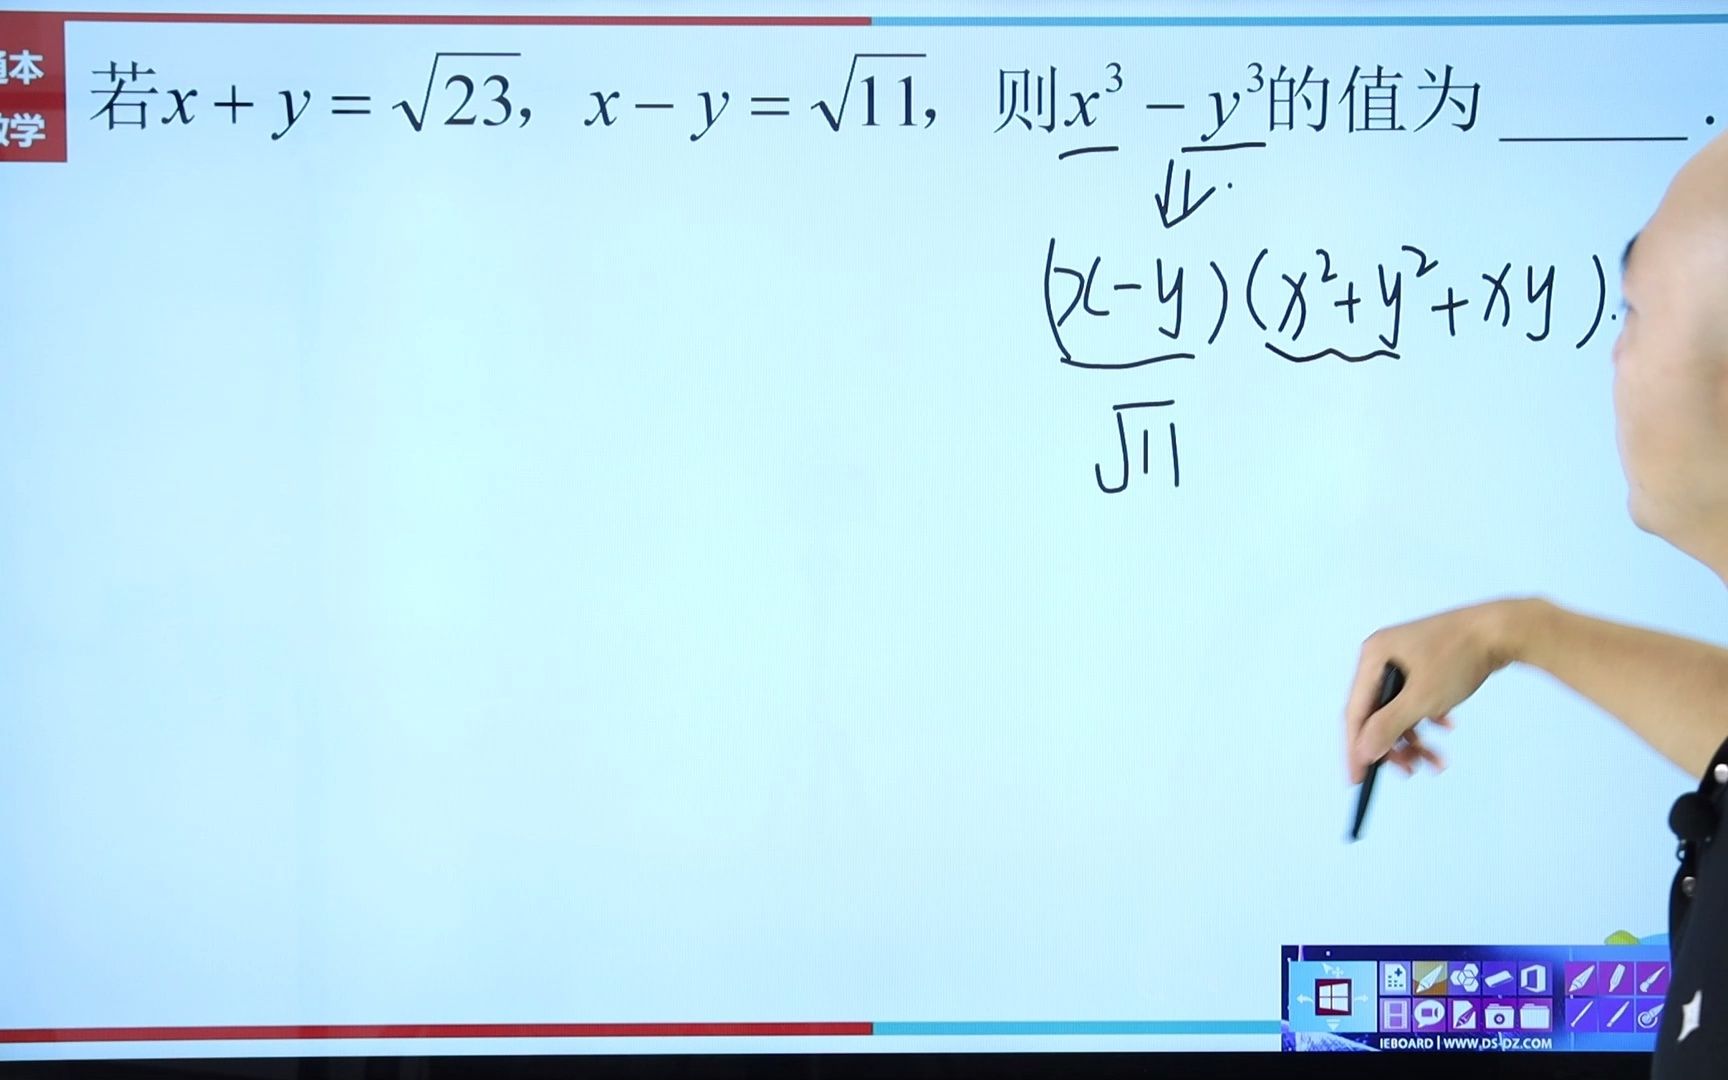 本
数学
若x + y = √23, x − y = √11, 则x³ − y³的值为 ______ .
(x-y)(x²+y²+xy).
√11
IEBOARD | WWW.DS-DZ.COM